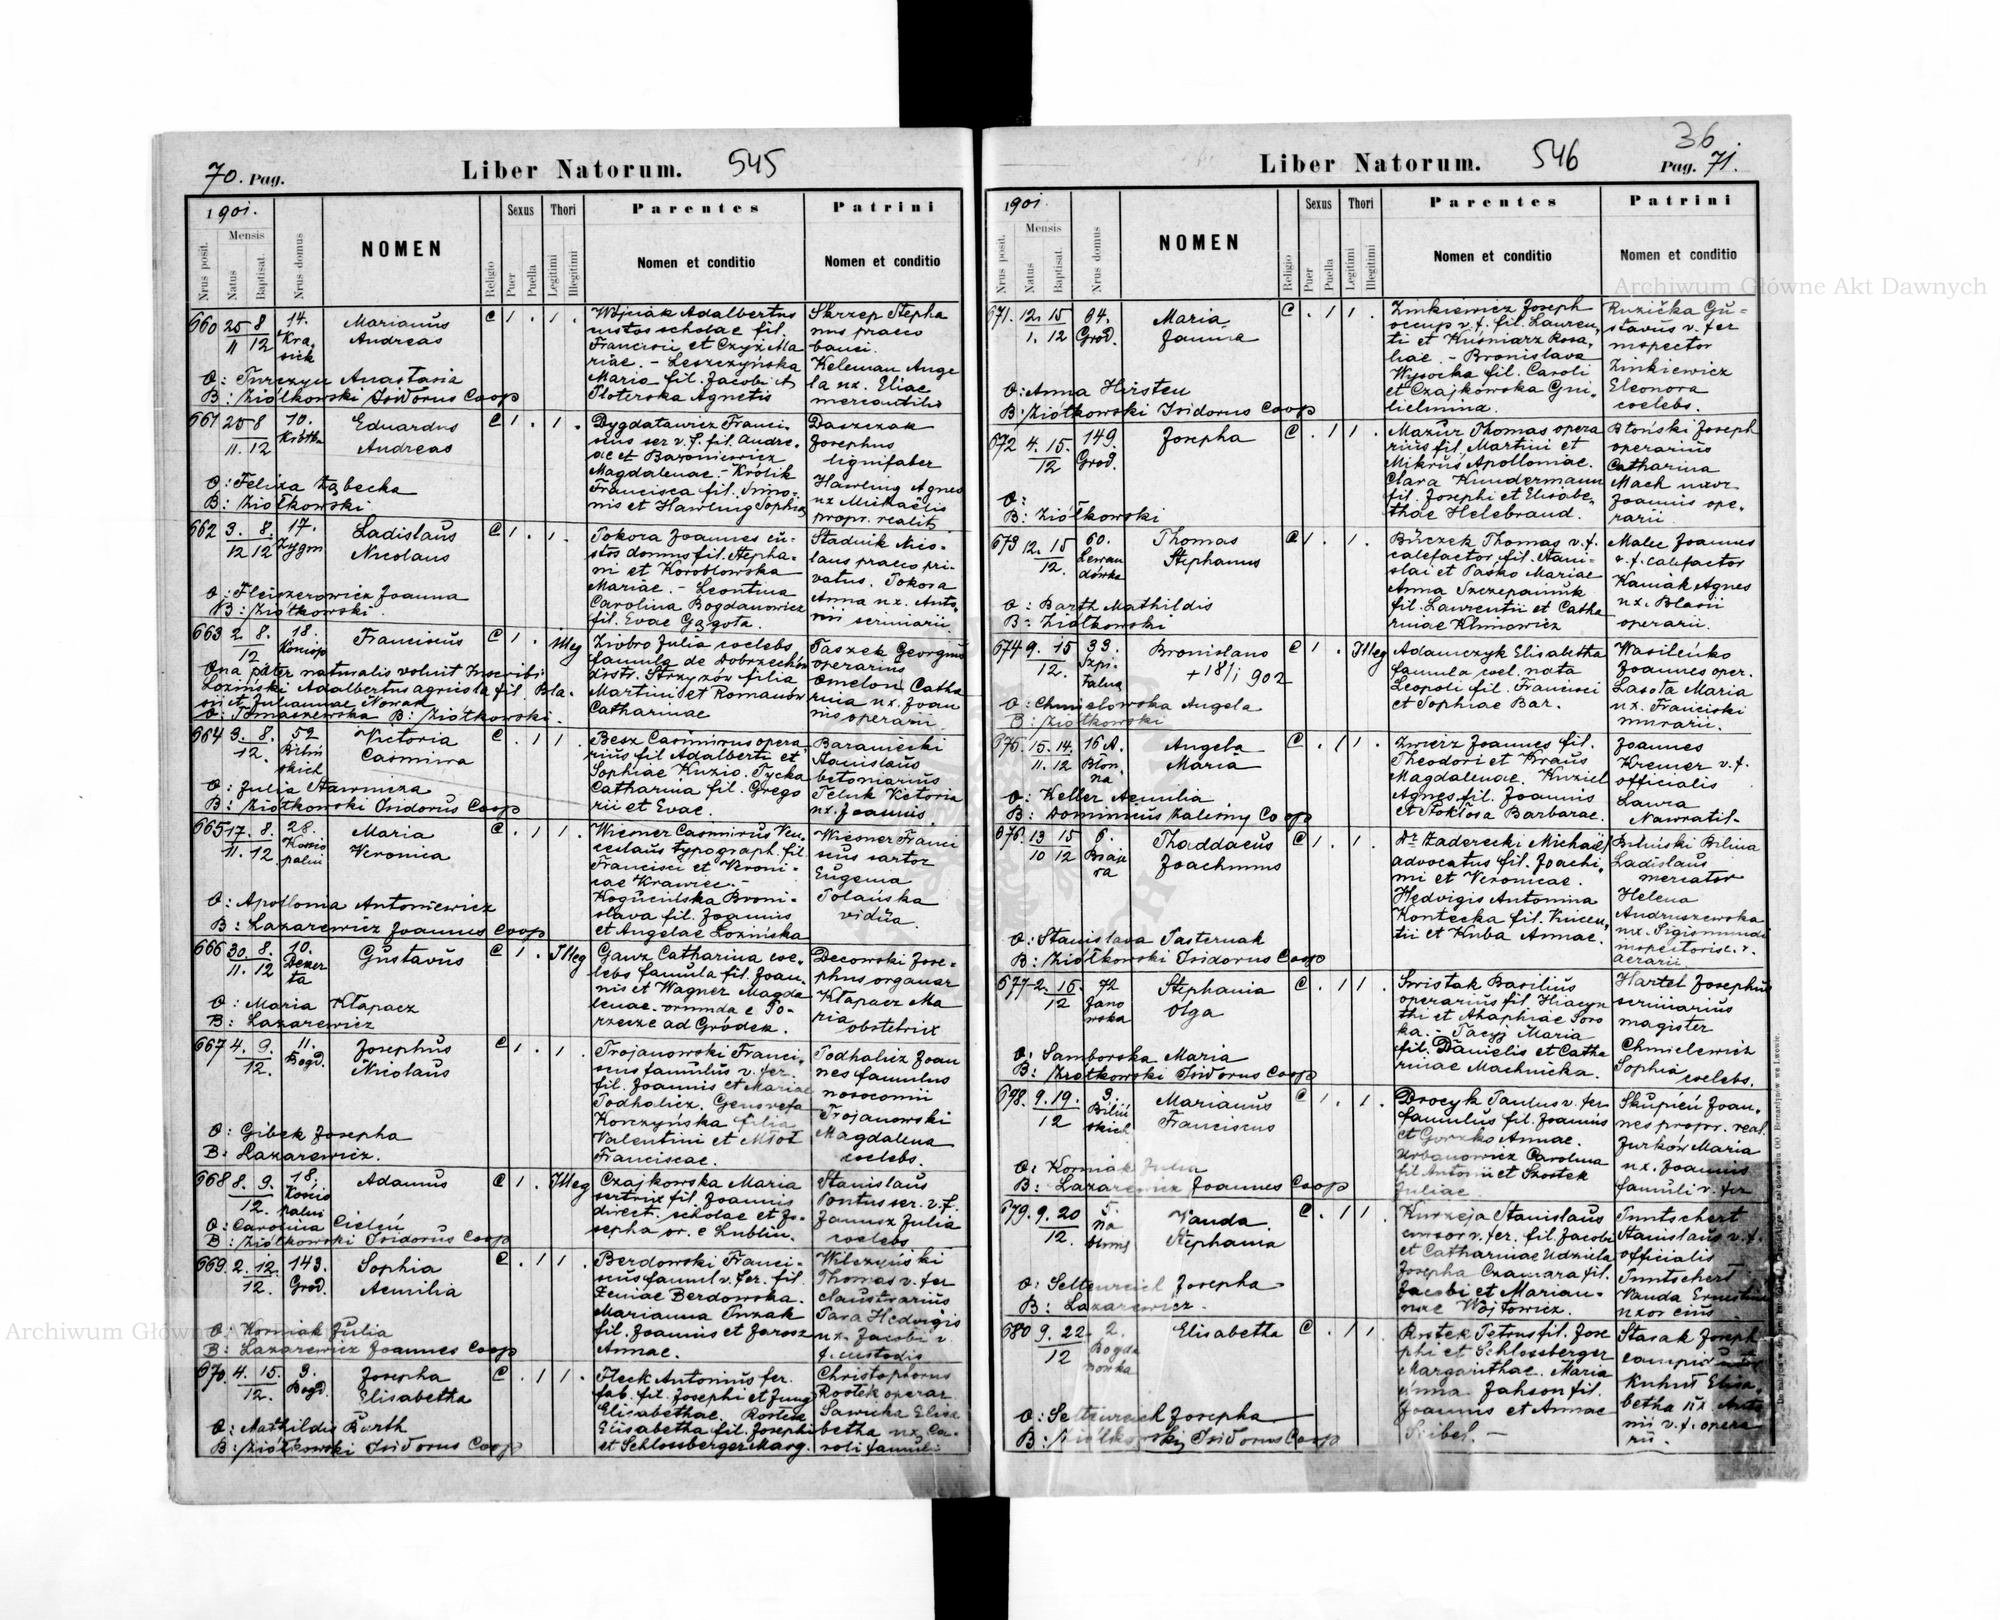 70. Pag.
Liber Natorum.
545
1901.
Nrus posit.
Mensis
Natus
Baptisat.
Nrus domus
NOMEN
Religio
Sexus
Puer
Puella
Thori
Legitimi
Illegitimi
Parentes
Nomen et conditio
Patrini
Nomen et conditio
660 25 8 14.
11 12 Kra
sick
Marianus
Andreas
C 1 . 1 .
Wojciak Adalbertus
custos scholae fil.
Francisci et Czyż Ma
riae. - Leszczyńska
Maria fil. Jacobi et
Ploterska Agnetis
Skrzep Stepha
nus praeco
banci.
Keleman Ange
la ux. Eliae
O: Turczyn Anastasia
B: Ziółkowski Isidorus Coop
661 25 8 10.
11. 12
Eduardus
Andreas
C 1 . 1 .
Magdalenae - Królik
Francisca fil. Simo-
nis et Hawling Sophia
Daszczak
Josephus
lignifaber
Hawling Agnes
ux Michaëlis
propr. realit.
O: Felixa Zabecka
B: Ziółkowski
662 3. 8. 17.
12 12 Zygm
Ladislaus
Nicolaus
C 1 . 1 .
Tokora Joannes cu-
stos domus fil. Stepha-
ni et Koroblowska
Mariae. - Leontina
Carolina Bogdanowicz
fil. Evae Gagota.
Stadnik Nico-
laus praeco pri-
vatus. Tokora
Anna ux. Anto-
nii
O: Fleiszerowicz Joanna
B: Ziółkowski
663 2. 8. 18.
12
Franciscus
C 1 . Illeg
Ziobro Julia coelebs
famula de Dobrzechów
distr. Strzyżów filia
Martini et Romanów
Catharinae
Paszek Georgius
operarius
Omelon Catha
rina ux. Joan
nis operarii
Qua pater naturalis voluit Inscribi
Loziński Adalbertus agricola fil. Bla-
sii et Juliannae Nowak
O: Tomaszewska B: Ziółkowski.
664 3. 8. 52
12. Biliń
skich
Victoria
Casimira
C . 1 1 .
Besz Casimirus opera
rius fil Adalberti et
Sophiae Kuzio. Tycka
Catharina fil. Grego
rii et Evae.
Baraniecki
Stanislaus
betoniarius
Peluk Victoria
ux. Joannis
O: Julia Stawnicza
B: Ziółkowski Isidorus Coop
665 17. 8. 28.
11. 12. Koscio
palni
Maria
Veronica
C . 1 1 .
Wiesner Casimirus Ven-
ceslaus typograph. fil
Francisci et Veroni-
cae Krawiec. -
Kogucińska Broni-
slava fil. Joannis
et Angelae Lozińska
Wiesner Franci
scus sartor
Eugenia
Polańska
vidua.
O: Apollonia Antoniewicz
B: Lazarewicz Joannes Coop
666 30. 8. 10.
11. 12 Dezer
ta
Gustavus
C 1 . Illeg
Ganz Catharina coe-
lebs famula fil. Joan-
nis et Wagner Magda
lenae. oriunda e Po-
rzecze ad Gródek.
Decowski Jose-
phus organar
Kłapacz Ma
ria
obstetrix
O: Maria Kłapacz
B: Lazarewicz
667 4. 9. 11.
12. Bogd.
Josephus
Nicolaus
C 1 . 1 .
Trojanowski Franci-
scus famulus v. fer.
fil. Joannis et Mariae
Podhalicz. Genovefa
Korczyńska filia
Valentini et Młot
Franciscae.
Podhalicz Joan
nes famulus
nosocomii
Trojanowski
Magdalena
coelebs.
O: Gibek Josepha
B: Lazarewicz.
668 8. 9. 18.
12. Koscio
palni
Adamus
C 1 . Illeg
Czajkowska Maria
sertrix fil. Joannis
direct. scholae et Jo-
sepha or. e Lublin.
Stanislaus
Pontus ser. v. f.
Janusz Julia
coelebs
O: Carolina Cieleń
B: Ziółkowski Isidorus Coop
669 2. 12. 143.
12. Grod.
Sophia
Aemilia
C . 1 1 .
Berdowski Franci-
scus famul v. fer. fil.
Xeniae Berdowska.
Marianna Turzak
fil. Joannis et Jarosz
Annae.
Wilczyński
Thomas v. fer
claustrarius
Para Hedvigis
ux. Jacobi v.
f. custodis
O: Korniak Julia
B: Lazarewicz Joannes Coop
670. 4. 15. 3.
12. Bogd.
Josepha
Elisabetha
C . 1 1 .
Fleck Antonius fer.
fab. fil. Josephi et Jung
Elisabethae. Rostek
Elisabetha fil. Josephi
et Schlossberger Marg.
Christophorus
Rostek operar
Sawicka Elisa
betha ux. Ca-
roli famuli
O: Mathildis Barth
B: Ziółkowski Isidorus Coop
36
Liber Natorum.
546
Pag. 71.
1901.
Nrus posit.
Mensis
Natus
Baptisat.
Nrus domus
NOMEN
Religio
Sexus
Puer
Puella
Thori
Legitimi
Illegitimi
Parentes
Nomen et conditio
Patrini
Nomen et conditio
671. 12. 15 64.
1. 12 Grod.
Maria
Janina
C . 1 1 .
Zinkiewicz Joseph
occup v. f. fil. Lauren-
ti et Kuśniarz Rosa-
liae. - Bronislava
Wysocka fil. Caroli
et Czajkowska Gui-
lielmina.
Ružička Gu-
stavus v. fer
inspector
Zinkiewicz
Eleonora
coelebs.
O: Anna Hirsten
B: Ziółkowski Isidorus Coop
672 4. 15. 149.
12 Grod.
Josepha
C . 1 1 .
Mazur Thomas opera
rius fil. Martini et
Mikruś Apolloniae.
Clara Kundermann
fil. Josephi et Elisabe-
thae Helebrand.
Błoński Joseph
operarius
Catharina
Mach uxor
Joannis ope-
rarii
O:
B: Ziółkowski
673 12. 15 60.
12. Lewan
dówka
Thomas
Stephanus
C 1 . 1 .
Búczek Thomas v. f.
calefactor fil. Stani-
slai et Paśko Mariae
Anna Szczepaniuk
fil. Laurentii et Catha
rinae Klimowicz
Malec Joannes
v. f. calefactor
Kaniak Agnes
ux. Blasii
operarii.
O: Barth Mathildis
B: Ziółkowski
674 9. 15 33.
12. Szpi
talna
Bronislaus
+ 18/1 902
C 1 . Illeg
Adamczyk Elisabetha
famula coel. nata
Leopoli fil. Francisci
et Sophiae Bar.
Wasileńko
Joannes oper.
Lasota Maria
ux. Francisci
murarii.
O: Chmielowska Angela
B: Ziółkowski
675. 15. 14. 16 A.
11. 12 Błon
na
Angela
Maria
C . 1 1 .
Zwierz Joannes fil.
Theodori et Kraus
Magdalenae. Kuziel
Agnes fil. Joannis
et Stokłosa Barbarae.
Joannes
Kremer v. f.
officialis
Laura
Nawratil-
O: Keller Aemilia
B: Dominicus Zaleśny Coop
676. 13 15 6.
10 12 Braje
ra
Thaddaeus
Joachimus
C 1 . 1 .
Dr Zaderecki Michaël
advocatus fil. Joachi-
mi et Veronicae.
Hedvigis Antonina
Kontecka fil. Vincen-
tii et Kuba Annae.
Biliński Bilina
Ladislaus
mercator
Helena
Andruszewska
ux. Sigismundi
aerarii
O: Stanislava Pasternak
B: Ziółkowski Isidorus Coop
677 2. 15. 72
12 Jano
wska
Stephania
Olga
C . 1 1 .
Swistak Basilius
operarius fil. Hiacyn
thi et Ahaphiae Soro
ka. - Pacyj Maria
fil. Danielis et Catha
rinae Machnicka.
Hartel Josephus
magister
Chmielewicz
Sophia
coelebs.
O: Samborska Maria
B: Ziółkowski Isidorus Coop
698. 9. 19. 3.
12 Biliń
skich
Marianus
Franciscus
C 1 . 1 .
Drocyk Paulus v. fer
famulus fil. Joannis
et Gorzko Annae.
Urbanowicz Carolina
fil Antonii et Szostek
Juliae
Skupień Joan-
nes propr. real.
Jurków Maria
ux. Joannis
famuli v. fer
O: Korniak Julia
B: Lazarewicz Joannes Coop
679. 9. 20 5.
12. na
błonie
Vanda
Stephania
C . 1 1
Kurzeja Stanislaus
cursor v. fer. fil. Jacobi
et Catharinae Udziela
Josepha Czamara fil.
Jacobi et Marian-
nae Wojtowicz.
Tuntschert
Stanislaus v. f.
officialis
Tuntschert
Vanda Ernestina
uxor eius
O: Seltenreich Josepha
B: Lazarewicz.
680 9. 22 2.
12 Bogda
nowka
Elisabetha
C . 1 1 .
Rostek Petrus fil. Jose
phi et Schlossberger
Margarithae. Maria
Anna Jahson fil.
Joannis et Annae
Seibel. -
Stasak Joseph
Kuhut Elisa-
betha ux. Anto
nii v. f. opera
rii.
O: Seltenreich Josepha
B: Ziółkowski Isidorus Coop
Archiwum Główne Akt Dawnych
Archiwum Główne Akt Dawnych